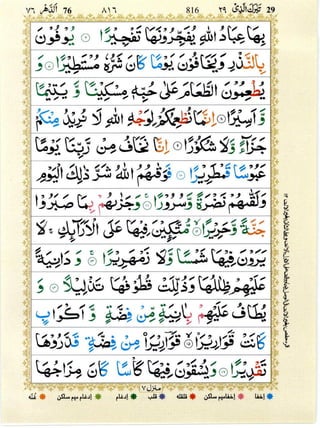 29 تَبٰرَكَ الَّذِیْ ٢٩ 816 ٨١٦ 76 اَلدَّهْر ٧٦
بِهَا عِبَادُ اللهِ يُفَجِّرُوْنَهَا تَفْجِيْرًا ۝ يُوْفُوْنَ
بِالنَّذْرِ وَيَخَافُوْنَ يَوْمًا كَانَ شَرُّهٗ مُسْتَطِيْرًا ۝ وَ
يُطْعِمُوْنَ الطَّعَامَ عَلٰى حُبِّهٖ مِسْكِيْنًا وَّ يَتِيْمًا
وَّ اَسِيْرًا ۝ اِنَّمَا نُطْعِمُكُمْ لِوَجْهِ اللهِ لَا نُرِيْدُ مِنْكُمْ
جَزَآءً وَّلَا شُكُوْرًا ۝ اِنَّا نَخَافُ مِنْ رَّبِّنَا يَوْمًا
عَبُوْسًا قَمْطَرِيْرًا ۝ فَوَقٰىهُمُ اللهُ شَرَّ ذٰلِكَ الْيَوْمِ
وَلَقّٰىهُمْ نَضْرَةً وَّسُرُوْرًا ۝ وَجَزٰىهُمْ بِمَا صَبَرُوْا
جَنَّةً وَّحَرِيْرًا ۝ مُّتَّكِـِٕيْنَ فِيْهَا عَلَى الْاَرَآئِكِ لَا
يَرَوْنَ فِيْهَا شَمْسًا وَّلَا زَمْهَرِيْرًا ۝ وَ دَانِيَةً
عَلَيْهِمْ ظِلٰلُهَا وَذُلِّلَتْ قُطُوْفُهَا تَذْلِيْلًا ۝ وَ
يُطَافُ عَلَيْهِمْ بِاٰنِيَةٍ مِّنْ فِضَّةٍ وَّ اَكْوَابٍ
كَانَتْ قَوَارِيْرَا۟ ۝ قَوَارِيْرَا۟ مِنْ فِضَّةٍ قَدَّرُوْهَا
تَقْدِيْرًا ۝ وَيُسْقَوْنَ فِيْهَا كَاْسًا كَانَ مِزَاجُهَا
منزل ٧
اخفا اخفامیم ساکن قلقله قلب ادغام ادغام میم ساکن غنّه